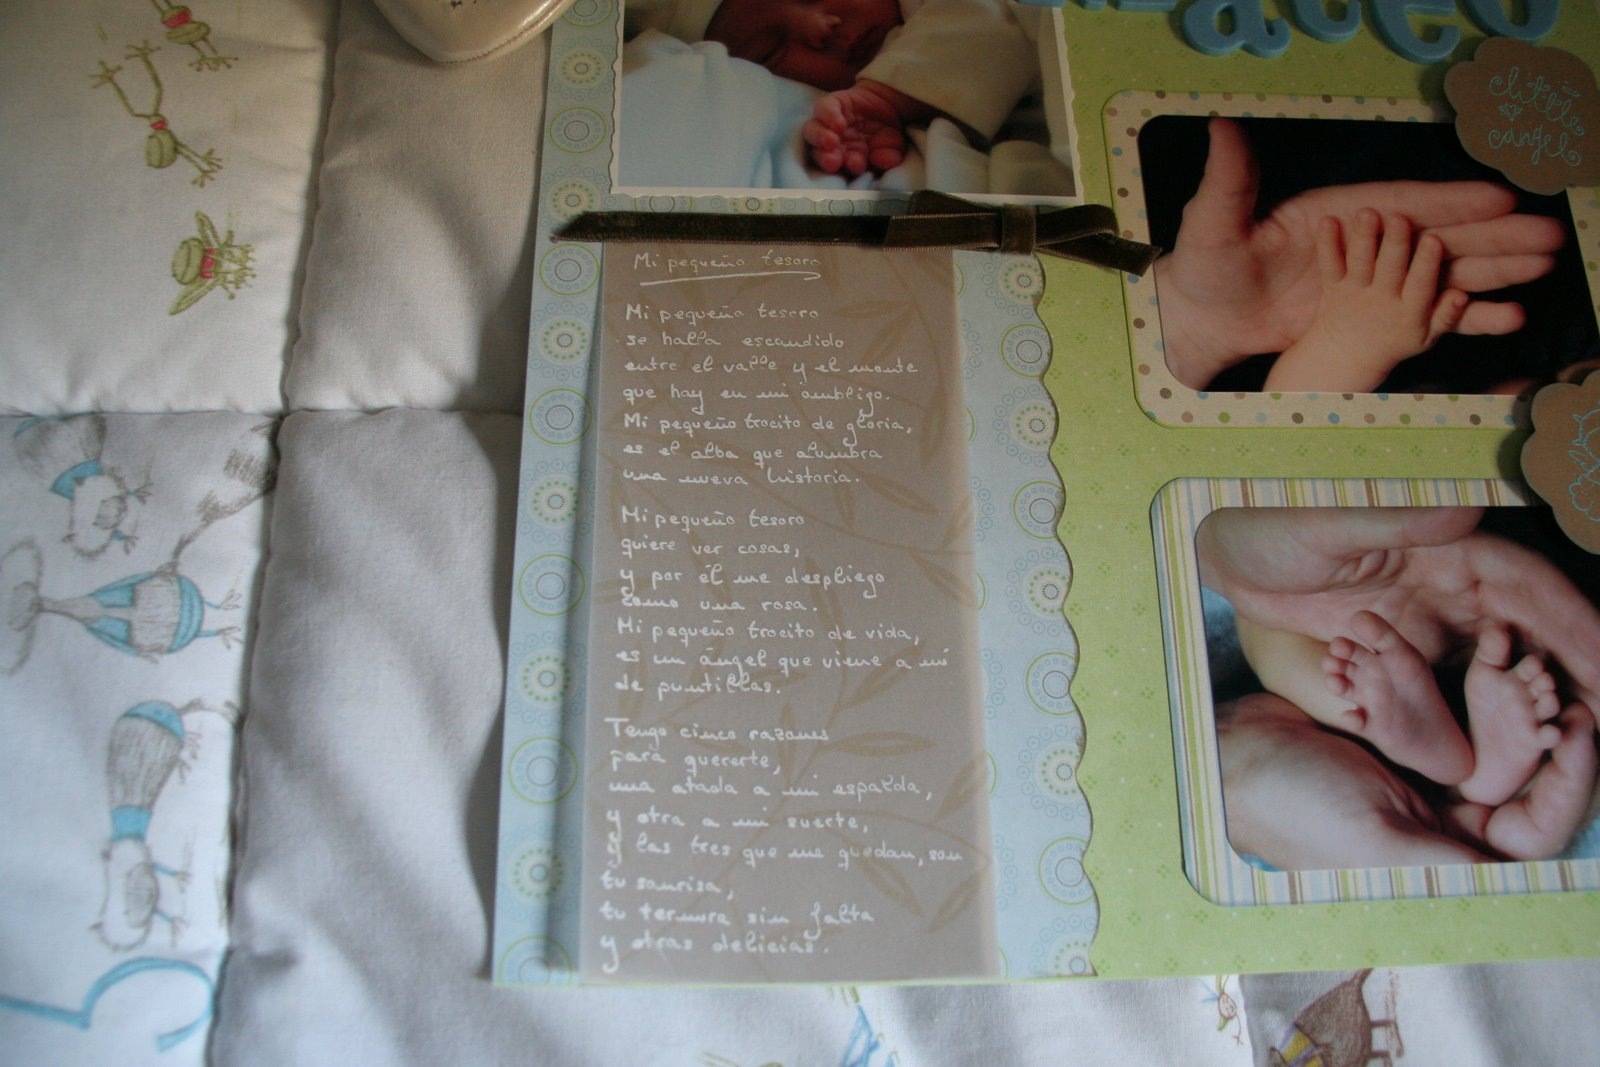 ateo
little
angel
Mi pequeño tesoro
Mi pequeño tesoro
se halla escondido
entre el valle y el monte
que hay en mi ombligo.
Mi pequeño trocito de gloria,
es el alba que alumbra
una nueva historia.
Mi pequeño tesoro
quiere ver cosas,
y por él me despliego
como una rosa.
Mi pequeño trocito de vida,
es un ángel que viene a mí
de puntillas.
Tengo cinco razones
para quererte,
una atada a mi espalda,
y otra a mi suerte,
y las tres que me quedan, son
tu sonrisa,
tu ternura sin falta
y otras delicias.
5